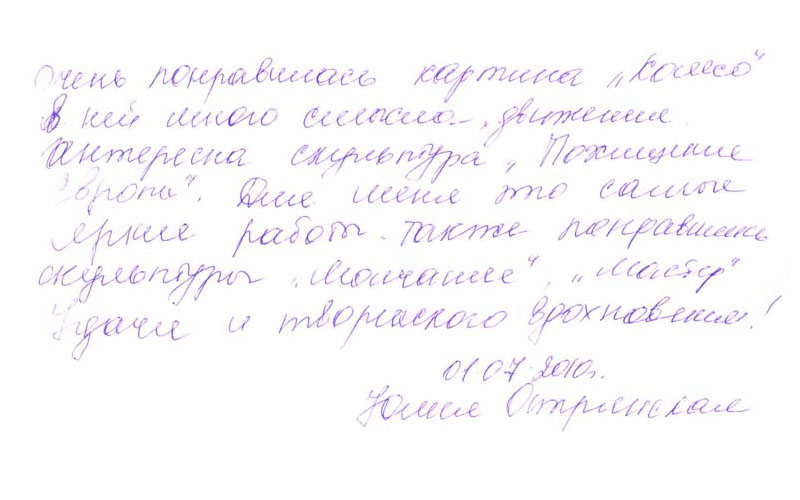 Очень понравилась картина „Колесо"
В ней много смысла, движения.
Интересна скульптура „Похищение
Европы". Для меня это самые
яркие работы. Также понравились
скульптуры „Молчание", „Мастер"
Удачи и творческого вдохновения!
01.07.2010г.
Юлия